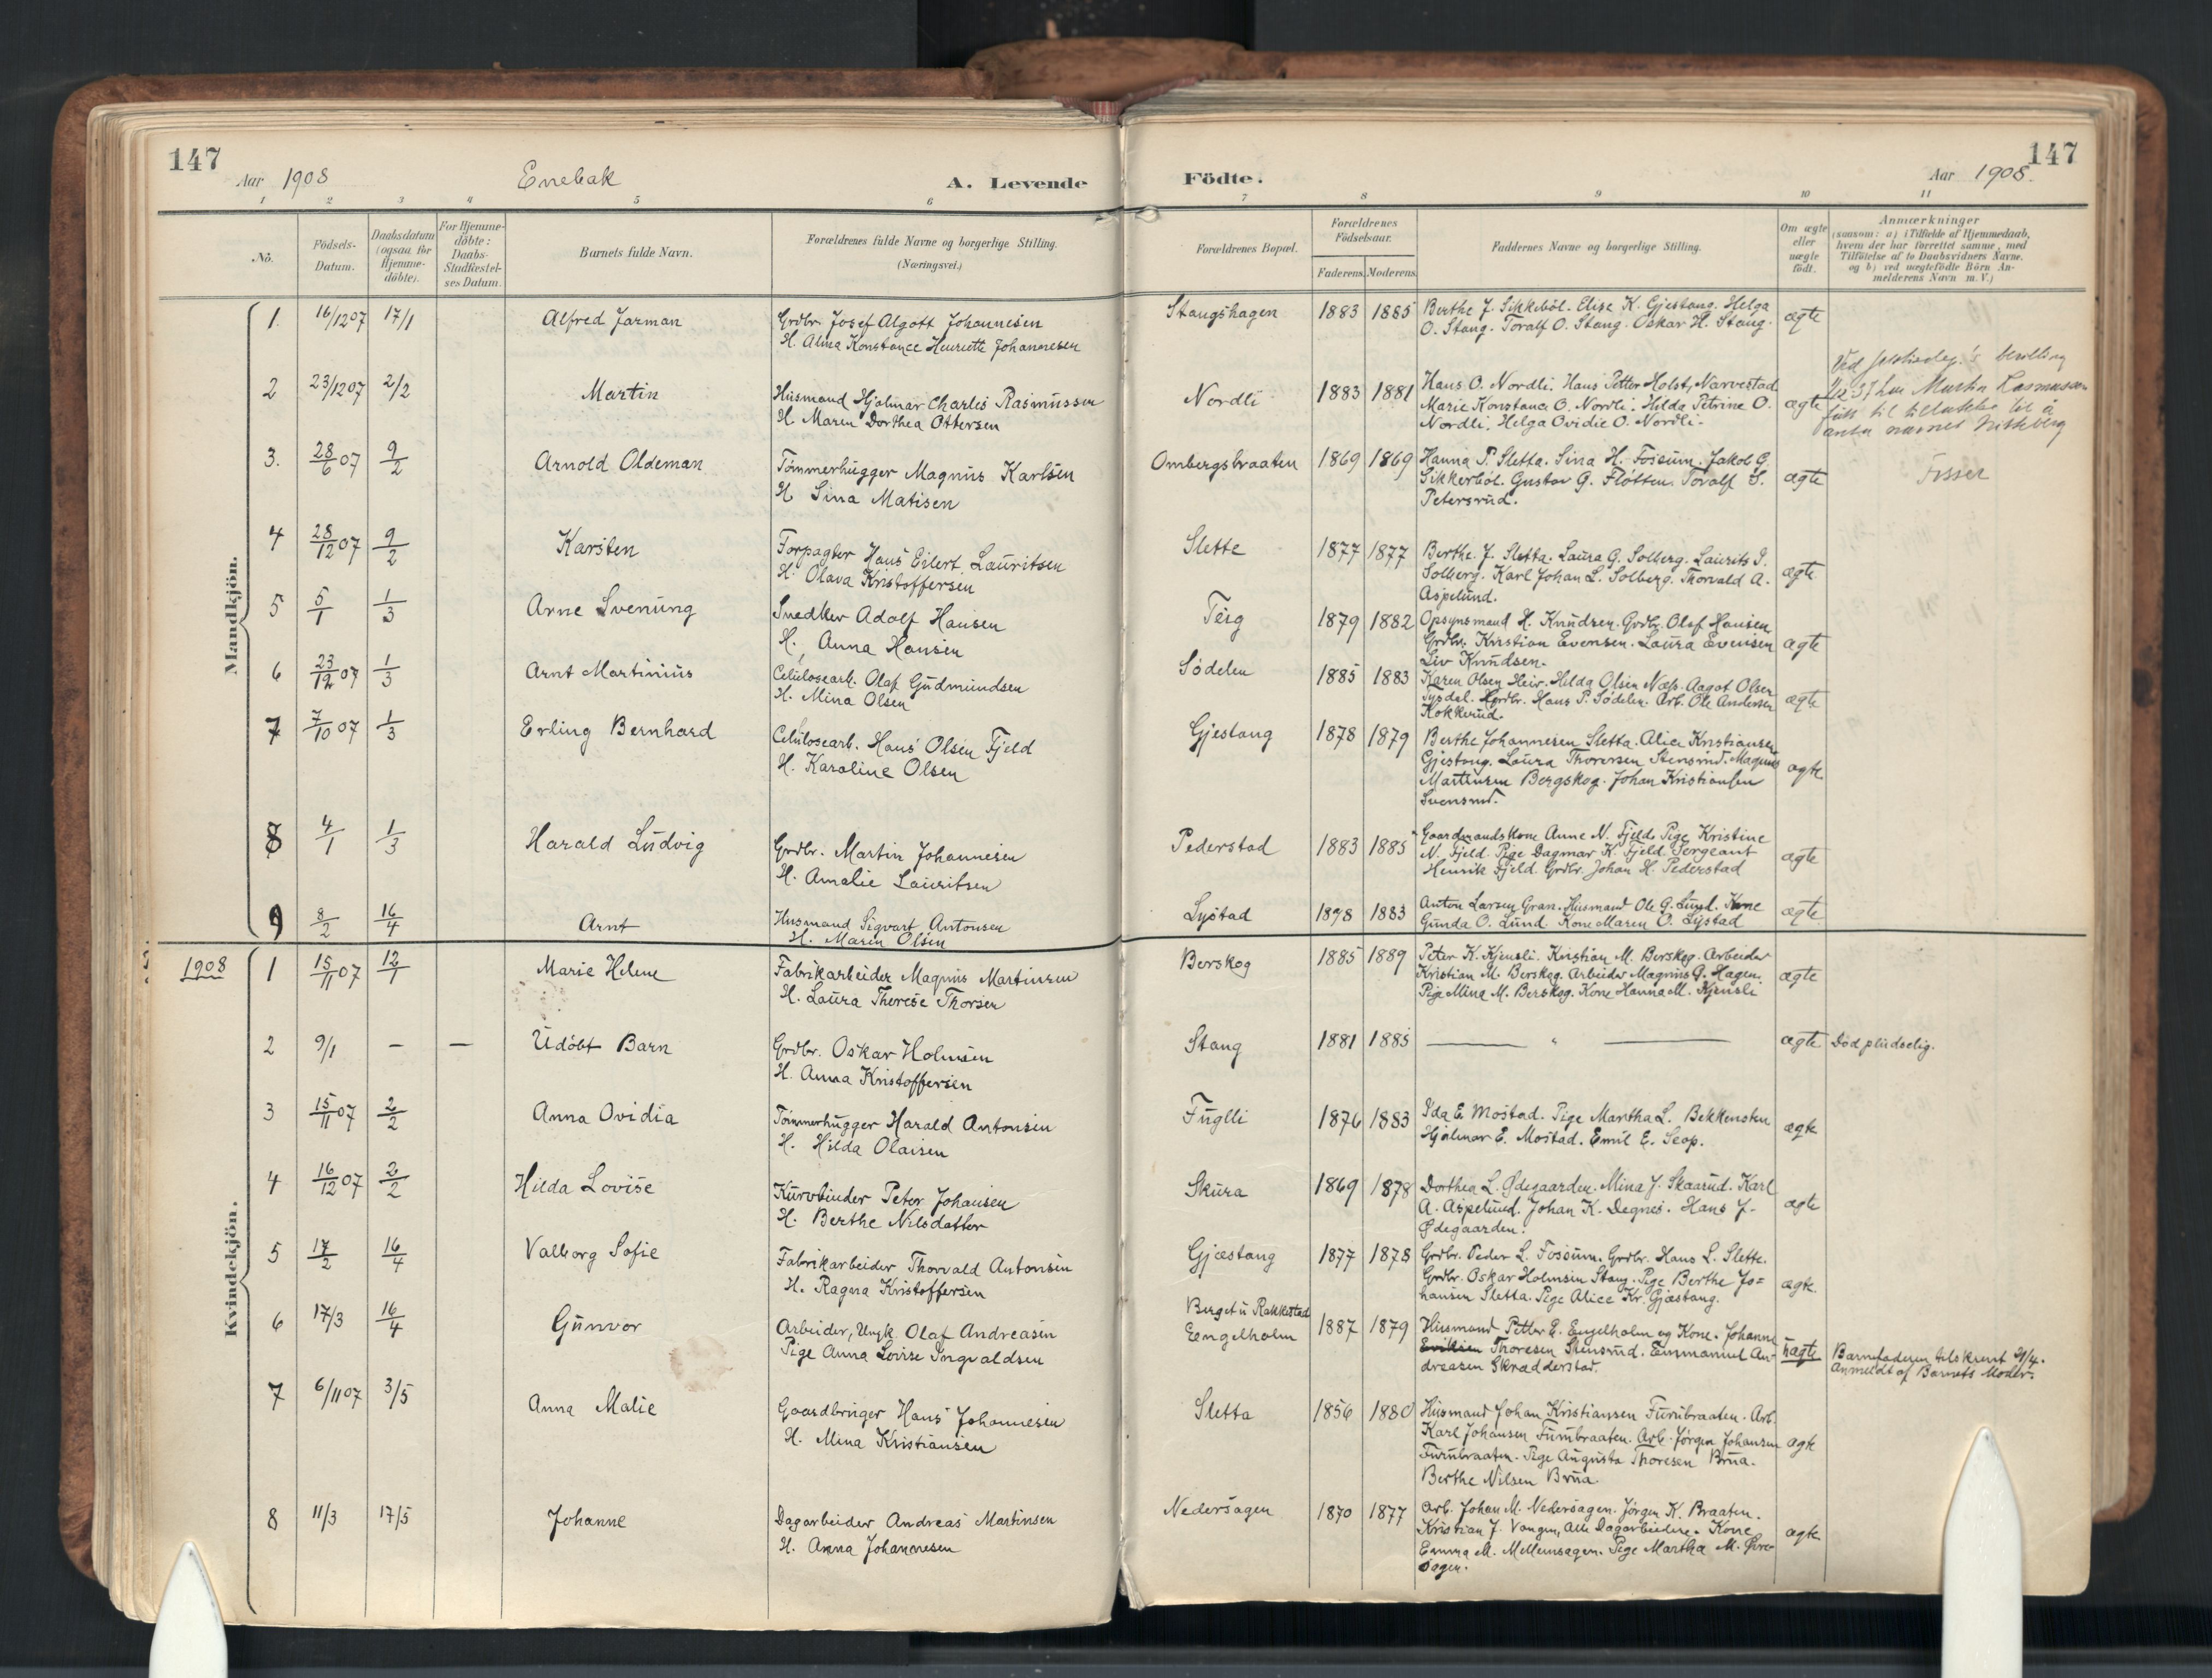 147
Aar 1908
Enebak
A. Levende
Födte.
Aar 1908.
147
1 2 3 4 5 6 7 8 9 10 11
No.
Födsels-
Datum.
Daabsdatum
(ogsaa for
Hjemme-
döbte).
For Hjemme-
döbte:
Daabs-
Stadfæstel-
ses Datum.
Barnets fulde Navn.
Forældrenes fulde Navne og borgerlige Stilling.
(Næringsvei.)
Forældrenes Bopæl.
Forældrenes
Födselsaar.
Faderens. Moderens.
Faddernes Navne og borgerlige Stilling.
Om ægte
eller
uægte
födt.
Anmærkninger
(saasom: a) i Tilfælde af Hjemmedaab,
hvem der har forrettet samme, med
Tilföielse af to Daabsvidners Navne,
og b) ved uægtefödte Börn An-
melderens Navn m. V.)
Mandkjön.
1. 16/12 07 17/1 Alfred Jarman
Grdbr. Josef Algott Johannesen
H. Alma Konstance Henriette Johannesen
Stangshagen 1883 1885
Berthe J. Sikkeból. Elise K. Gjestang. Helga
O. Stang. Toralf O. Stang. Oskar H. Stang.
ægte
2 23/12 07 2/2 Martin
Husmand Hjalmar Charles Rasmussen
H. Maren Dorthea Ottersen
Nordli 1883 1881
Hans O. Nordli. Hans Petter Holst, Narvestad
Marie Konstance O. Nordli. Hilda Petrine O.
Nordli. Helga Ovidie O. Nordli.
ægte
Ved bevilling
har Martin Rasmussen
fått til tillatelse til å
anta navnet
3. 28/6 07 9/2 Arnold Oldeman
Tömmerhugger Magnus Karlsen
H. Sina Matisen
Ombergsbraaten 1869 1869
Hanna P. Sletta. Sina H. Fossum. Jakob G.
Sikkerból. Gustav G. Fløtten. Toralf S.
Petersrud.
ægte
4 28/12 07 9/2 Karsten
Forpagter Hans Eilert Lauritsen
H. Olava Kristoffersen
Slette 1877 1877
Berthe J. Sletta. Laura G. Solberg. Laurits I.
Solberg. Karl Johan L. Solberg. Thorvald A.
Aspelund.
ægte
5 5/1 1/3 Arne Svenung
Snedker Adolf Hansen
H. Anna Hansen
Teig 1879 1882
Opsynsmand H. Knudsen. Grdbr. Olaf Hansen
Grdbr. Kristian Evensen. Laura Evensen
Liv Knudsen.
ægte
6 23/12 07 1/3 Arnt Martinius
Celulosearb. Olaf Gudmundsen
H. Mina Olsen
Södelen 1885 1883
Karen Olsen Heir. Hilda Olsen Næs. Aagot Olsen
Hans P. Södelen. Arb. Ole Andersen
Kokkerud.
ægte
7 7/10 07 1/3 Erling Bernhard
Celulosearb. Hans Olsen Fjeld
H. Karoline Olsen
Gjestang 1878 1879
Berthe Johannesen Sletta. Alice Kristiansen
Gjestang. Laura Thoresen Stensrud. Magnus
Martinsen Bergskog. Johan Kristiansen
Svensrud.
ægte
8 4/1 1/3 Harald Ludvig
Grdbr. Martin Johannesen
H. Amalie Lauritsen
Pederstad 1883 1885
Gaardmandskone Anne N. Fjeld. Pige Kristine
N. Fjeld. Pige Dagmar K. Fjeld. Sergeant
Henrik Fjeld. Grdbr. Johan H. Pederstad
ægte
9 8/2 16/4 Arnt
Husmand Sigvart Antonsen
H. Maren Olsen
Lystad 1878 1883
Anton Larsen Gran. Husmand Ole G. Lund. Kone
Gunda O. Lund. Kone Maren O. Lystad
ægte
Kvindekjön.
1908
1 15/11 07 12/1 Marie Helene
Fabrikarbeider Magnus Martinsen
H. Laura Therese Thorsen
Berskog 1885 1889
Peter K. Kjensli. Kristian M. Berskog. Arbeider
Kristian M. Berskog. Arbeider Magnus G. Hagen.
Pige Mina M. Berskog. Kone Hanna M. Kjensli
ægte
2 9/1 – – Udöbt Barn
Grdbr. Oskar Holmsen
H. Anna Kristoffersen
Stang 1881 1885
— " —
ægte Död pludselig.
3 15/11 07 2/2 Anna Ovidia
Tömmerhugger Harald Antonsen
H. Hilda Olaisen
Fuglli 1876 1883
Ida E. Mostad. Pige Martha L. Bekkensten
Hjalmar E. Mostad. Emil E. Seop.
ægte
4 16/12 07 2/2 Hilda Lovise
Kurvbinder Peter Johansen
H. Berthe Nilsdatter
Skura 1869 1878
Dorthea L. Ødegaarden. Mina J. Skaarud. Karl
A. Aspelund. Johan K. Degnes. Hans J.
Ødegaarden.
ægte
5 17/2 16/4 Valborg Sofie
Fabrikarbeider Thorvald Antonsen
H. Ragna Kristoffersen
Gjæstang 1877 1878
Grdbr. Peder L. Fossum. Grdbr. Hans L. Slette.
Grdbr. Oskar Holmsen Stang. Pige Berthe Jo=
hansen Sletta. Pige Alice Kr. Gjæstang.
ægte.
6 17/3 16/4 Gunvor
Arbeider, Ungk. Olaf Andreasen
Pige Anna Lovise Ingvaldsen
Berget i Rakkestad
Engelholm 1887 1879
Husmand Petter E. Engelholm og Kone. Johanne
Eriksen Thoresen Stensrud. Emmanuel An-
dreasen Skrædderstad.
uægte
Barnefaderen tilskrevet 21/4.
Anmeldt af Barnets Moder.
7 6/11 07 3/5 Anna Malie
Gaardbruger Hans Johannesen
H. Mina Kristiansen
Sletta 1856 1880
Husmand Johan Kristiansen Furubraaten. Arb.
Karl Johansen Furubraaten. Arb. Jørgen Johansen
Furubraaten. Pige Augusta Thoresen Brua.
Berthe Nilsen Brua.
ægte
8 11/3 17/5 Johanne
Dagarbeider Andreas Martinsen
H. Anna Johannesen
Nedersagen 1870 1877
Arb. Johan M. Nedersagen. Jørgen K. Braaten.
Kristian J. Vangen, alle Dagarbeidere. Kone
Emma M. Mellemsagen. Pige Martha M. Øvre-
sagen.
ægte